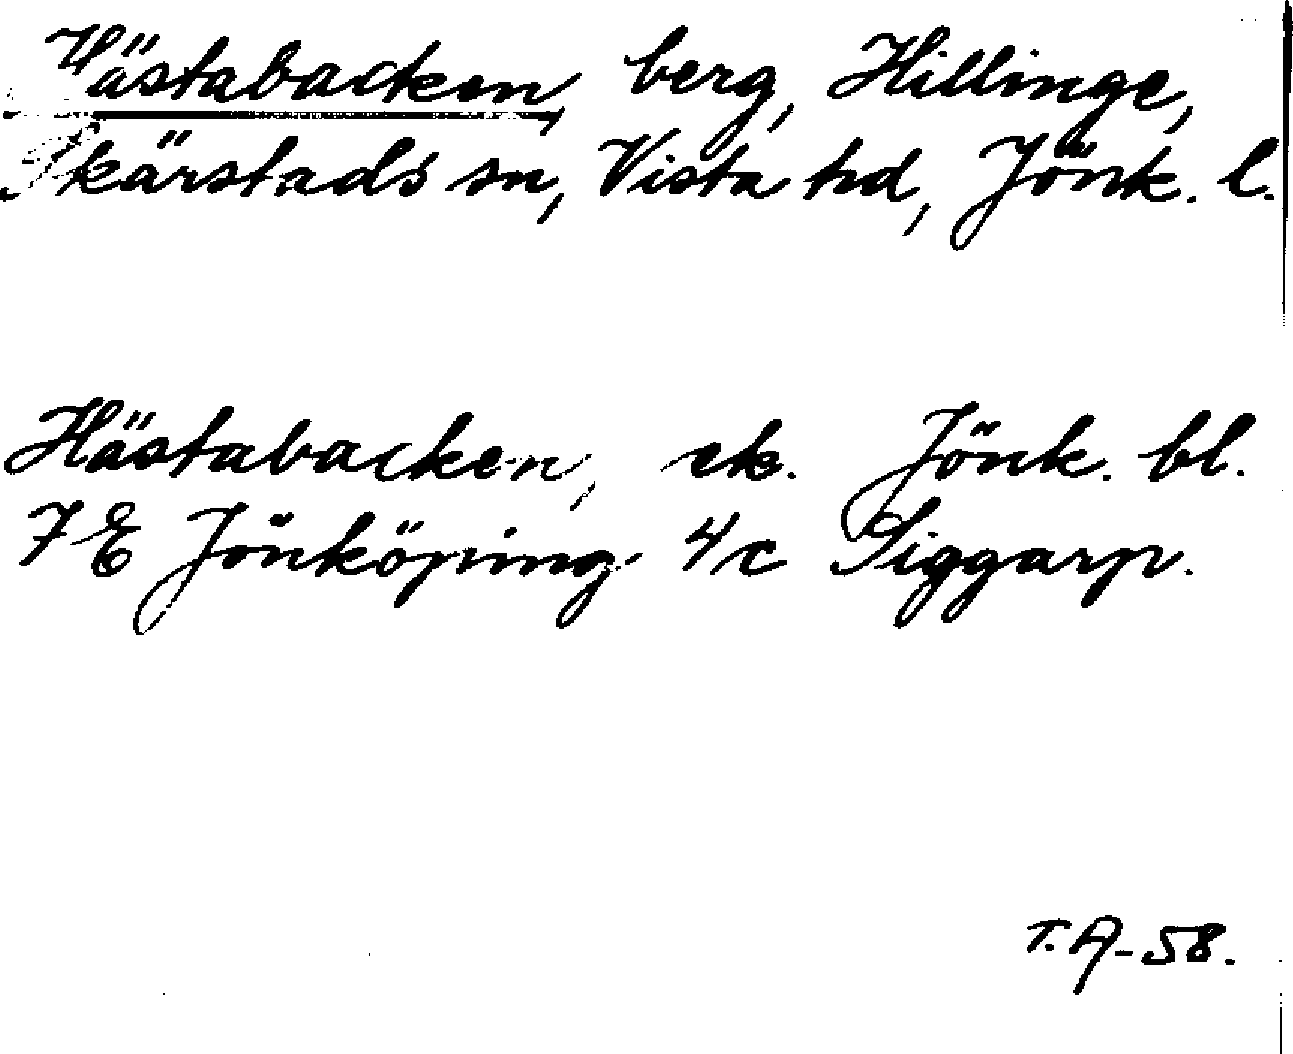 Hästabacken, berg, Hillinge,
Skärstads sn, Vista hd, Jönk. l.
Hästabacken, ek. Jönk. bl.
7 E Jönköping 4c Siggarp.
T. A-58.